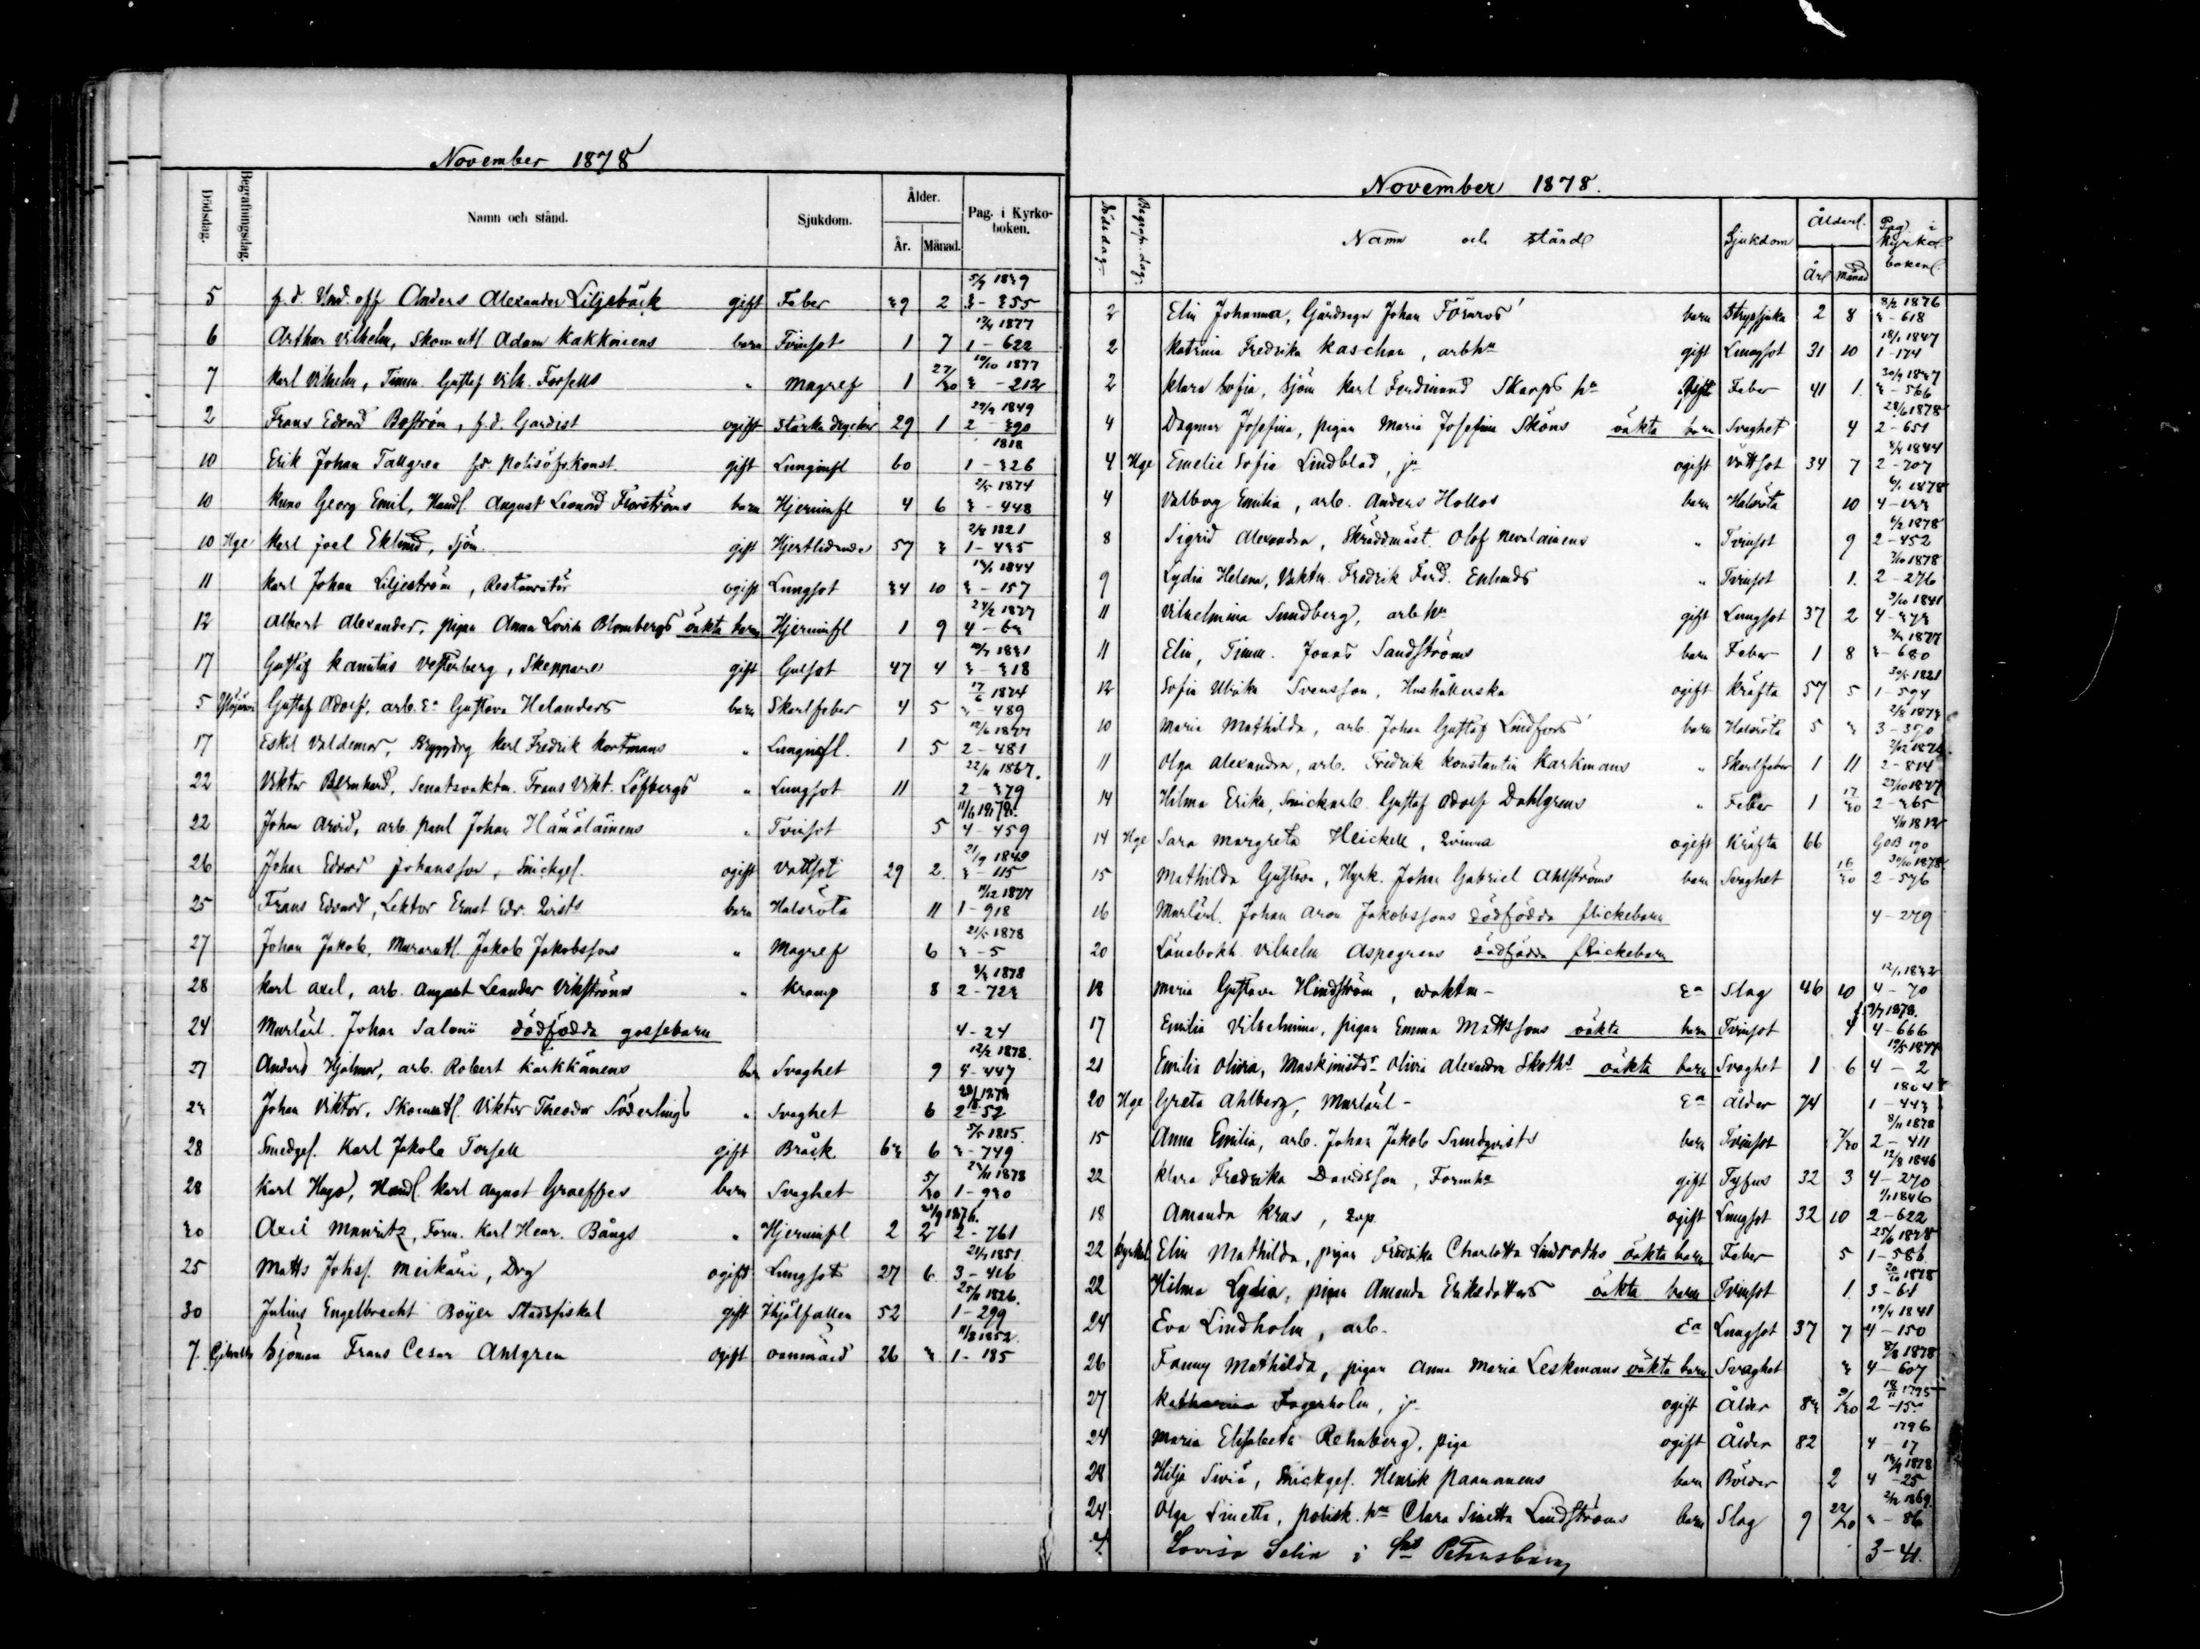 November 1878
Dödsdag. Begrafningsdag. Namn och stånd. Sjukdom. Ålder. År. Månad. Pag. i Kyrkoboken.
5 f.d. Und.off Anders Alexander Liljebäck gift Feber 39 2 5/9 1839 3-355
6 Arthur Vilhelm, Skomutl Adam Kakkoinens barn Tvinsot 1 7 1877 1-622
7 Karl Vilhelm, Timm. Gustaf Vilh. Forsells " Magref 1 27/30 10/10 1877 3-212
2 Frans Edvard Boström, f.d. Gardist ogift Starka drycker 29 1 29/9 1849 2-390
10 Erik Johan Tallgren f.d. polisöfvkonst. gift Lunginfl 60 1818 1-326
10 Kuno Georg Emil, Handl. August Leonard Florströms barn Hjerninfl 4 6 2/5 1874 3-448
10 Hge Karl Joel Eklund, Sjöm. gift Hjertlidande 57 3 2/8 1821 1-435
11 Karl Johan Liljeström, Restauratör ogift Lungsot 34 10 1844 3-157
12 Albert Alexander, pigan Anna Lovisa Blombergs oäkta barn Hjerninfl 1 9 24/2 1877 4-63
17 Gustaf Kanutus Vesterberg, Skeppare gift Gulsot 47 4 10/7 1831 3-318
5 Gustaf Adolf, arb. Ea Gustava Helanders barn Skarlfeber 4 5 17/6 1874 3-489
17 Eskil Valdemar, Bryggdrg Karl Fredrik Kortmans " Lunginfl. 1 5 12/6 1877 2-481
22 Viktor Bernhard, Senatsvaktm. Frans Vikt. Löfbergs " Lungsot 11 22/11 1867. 2-379
22 Johan Arvid, arb. Paul Johan Hämäläinens " Tvinsot 5 11/6 1878. 4-459
26 Johan Edvard Johansson, Snickges. ogift Vattsot 29 2 21/9 1849 3-115
25 Frans Edvard, Lektor Ernst Edv. Qvists barn Halsröta 11 11/12 1877 1-918
27 Johan Jakob, Murarutl. Jakob Jakobssons " Magref 6 21/5 1878 3-5
28 Karl Axel, arb. August Leander Vikströms " Kramp 8 3/3 1878 2-723
24 Murlärl. Johan Salonii dödfödda gossebarn 4-24
27 Anders Hjalmar, arb. Robert Kärkkänens barn Svaghet 9 12/2 1878. 4-447
23 Johan Viktor, Skomutl. Viktor Theodor Söderlings " Svaghet 6 1878 2-52
28 Smedges. Karl Jakob Forsell gift Bråck 63 6 5/5 1815. 3-749
28 Karl Hugo, Handl. Karl August Graeffes barn Svaghet 5/30 23/11 1878 1-930
30 Axel Mauritz, Form. Karl Henr. Bångs " Hjerninfl 2 2 1876. 2-761
25 Matts Johss. Meikäri, Drg ogift Lungsot 27 6 21/5 1851 3-416
30 Julius Engelbrecht Böyer Stadsfiskal gift Ihjälfallen 52 25/11 1826. 1-299
7 Sjöman Frans Cesar Ahlgren ogift vanmård 26 3 11/8 1852. 1-185
November 1878.
Dödsdag Begrafn. dag. Namn och stånd Sjukdom Ålder. År Månad Pag. i Kyrkoboken.
2 Elin Johanna, Gårdsegar Johan Forsros' barn Strypsjuka 2 8 8/2 1876 3-618
2 Katrina Fredrika Kaschan, arbha gift Lungsot 31 10 18/1 1847 1-174
2 Klara Sofia, Sjöm Karl Ferdinand Skarps ha gift Feber 41 1. 30/9 1837 3-566
4 Dagmar Josefina, pigan Maria Josefina Sköns oäkta barn Svaghet 4 28/6 1878 2-651
4 Hge Emelie Sofia Lindblad, jn ogift Vattsot 34 7 8/4 1844 2-707
4 Valborg Emilia, arb. Anders Hollos barn Halsröta 10 6/1 1878 4-133
8 Sigrid Alexandra, Skräddmäst. Olof Nevalainens " Tvinsot 9 4/2 1878 2-452
9 Lydia Helena, Vaktm. Fredrik Ferd. Enlunds " Tvinsot 1. 3/10 1878 2-276
11 Vilhelmina Sundberg, arb hu gift Lungsot 37 2 9/10 1841 4-373
11 Elin, Timm. Jonas Sandströms barn Feber 1 8 9/3 1877 3-680
12 Sofia Ulrika Svensson, Hushållerska ogift Kräfta 57 5 30/5 1821 1-594
10 Maria Mathilda, arb. Johan Gustaf Lindfors' barn Halsröta 5 3 2/8 1873 3-370
11 Olga Alexandra, arb. Fredrik Konstantin Karkmans " Skarlfeber 1 11 3/12 1876. 2-814
14 Hilma Erika, Snickarb. Gustaf Adolf Dahlgrens " Feber 1 17/30 27/10 1877 2-365
14 Hge Sara Margreta Heickell, Qvinna ogift Kräfta 66 4/11 1812 GOB 190
15 Mathilda Gustava, Hyrk. Johan Gabriel Ahlströms barn Svaghet 16/30 30/10 1878 2-576
16 Murlärl. Johan Aron Jakobssons dödfödda flickebarn 4-279
20 Länebokh. Vilhelm Aspegrens dödfödda flickebarn
18 Maria Gustava Hindström, vaktm- Ea Slag 46 10 12/1 1832 4-70
17 Emilia Vilhelmina, pigan Emma Mattssons oäkta barn Tvinsot 4 9/7 1878. 4-666
21 Emilia Olivia, Maskinistdr Olivia Alexandra Skoths oäkta barn Svaghet 1 6 19/5 1877 4-2
20 Hge Greta Ahlberg, Murlärl- Ea Ålder 74 1804 1-443
15 Anna Emilia, arb. Johan Jakob Sundqvists barn Tvinsot 7/30 8/11 1878 2-411
22 Klara Fredrika Davidsson, Formha gift Tyfus 32 3 12/8 1846 4-270
18 Amanda Krus, Qvp. ogift Lungsot 32 10 1/1 1846 2-622
22 Elin Mathilda, pigan Fredrika Charlotta Lindroths oäkta barn Feber 5 25/6 1878 1-586
22 Hilma Lydia, pigan Amanda Eriksdotters oäkta barn Tvinsot 1. 20/10 1878 3-61
24 Eva Lindholm, arb- Ea Lungsot 37 7 19/4 1841 4-150
26 Fanny Mathilda, pigan Anna Maria Leskmans oäkta barn Svaghet 3 8/8 1878 4-607
27 Katharina Fagerholm, jn ogift Ålder 83 9/30 18/11 1795 2-15
24 Maria Elisabeth Rehnberg, piga ogift Ålder 82 1796 4-17
28 Hilja Siviä, Snickges. Henrik Paananens barn Bölder 2 14/9 1878 4-25
24 Olga Sinetta, polisk. ha Clara Sinetta Lindströms barn Slag 9 22/30 2/2 1869. 3-86
Lovisa Selin i St Petersburg 3-41.